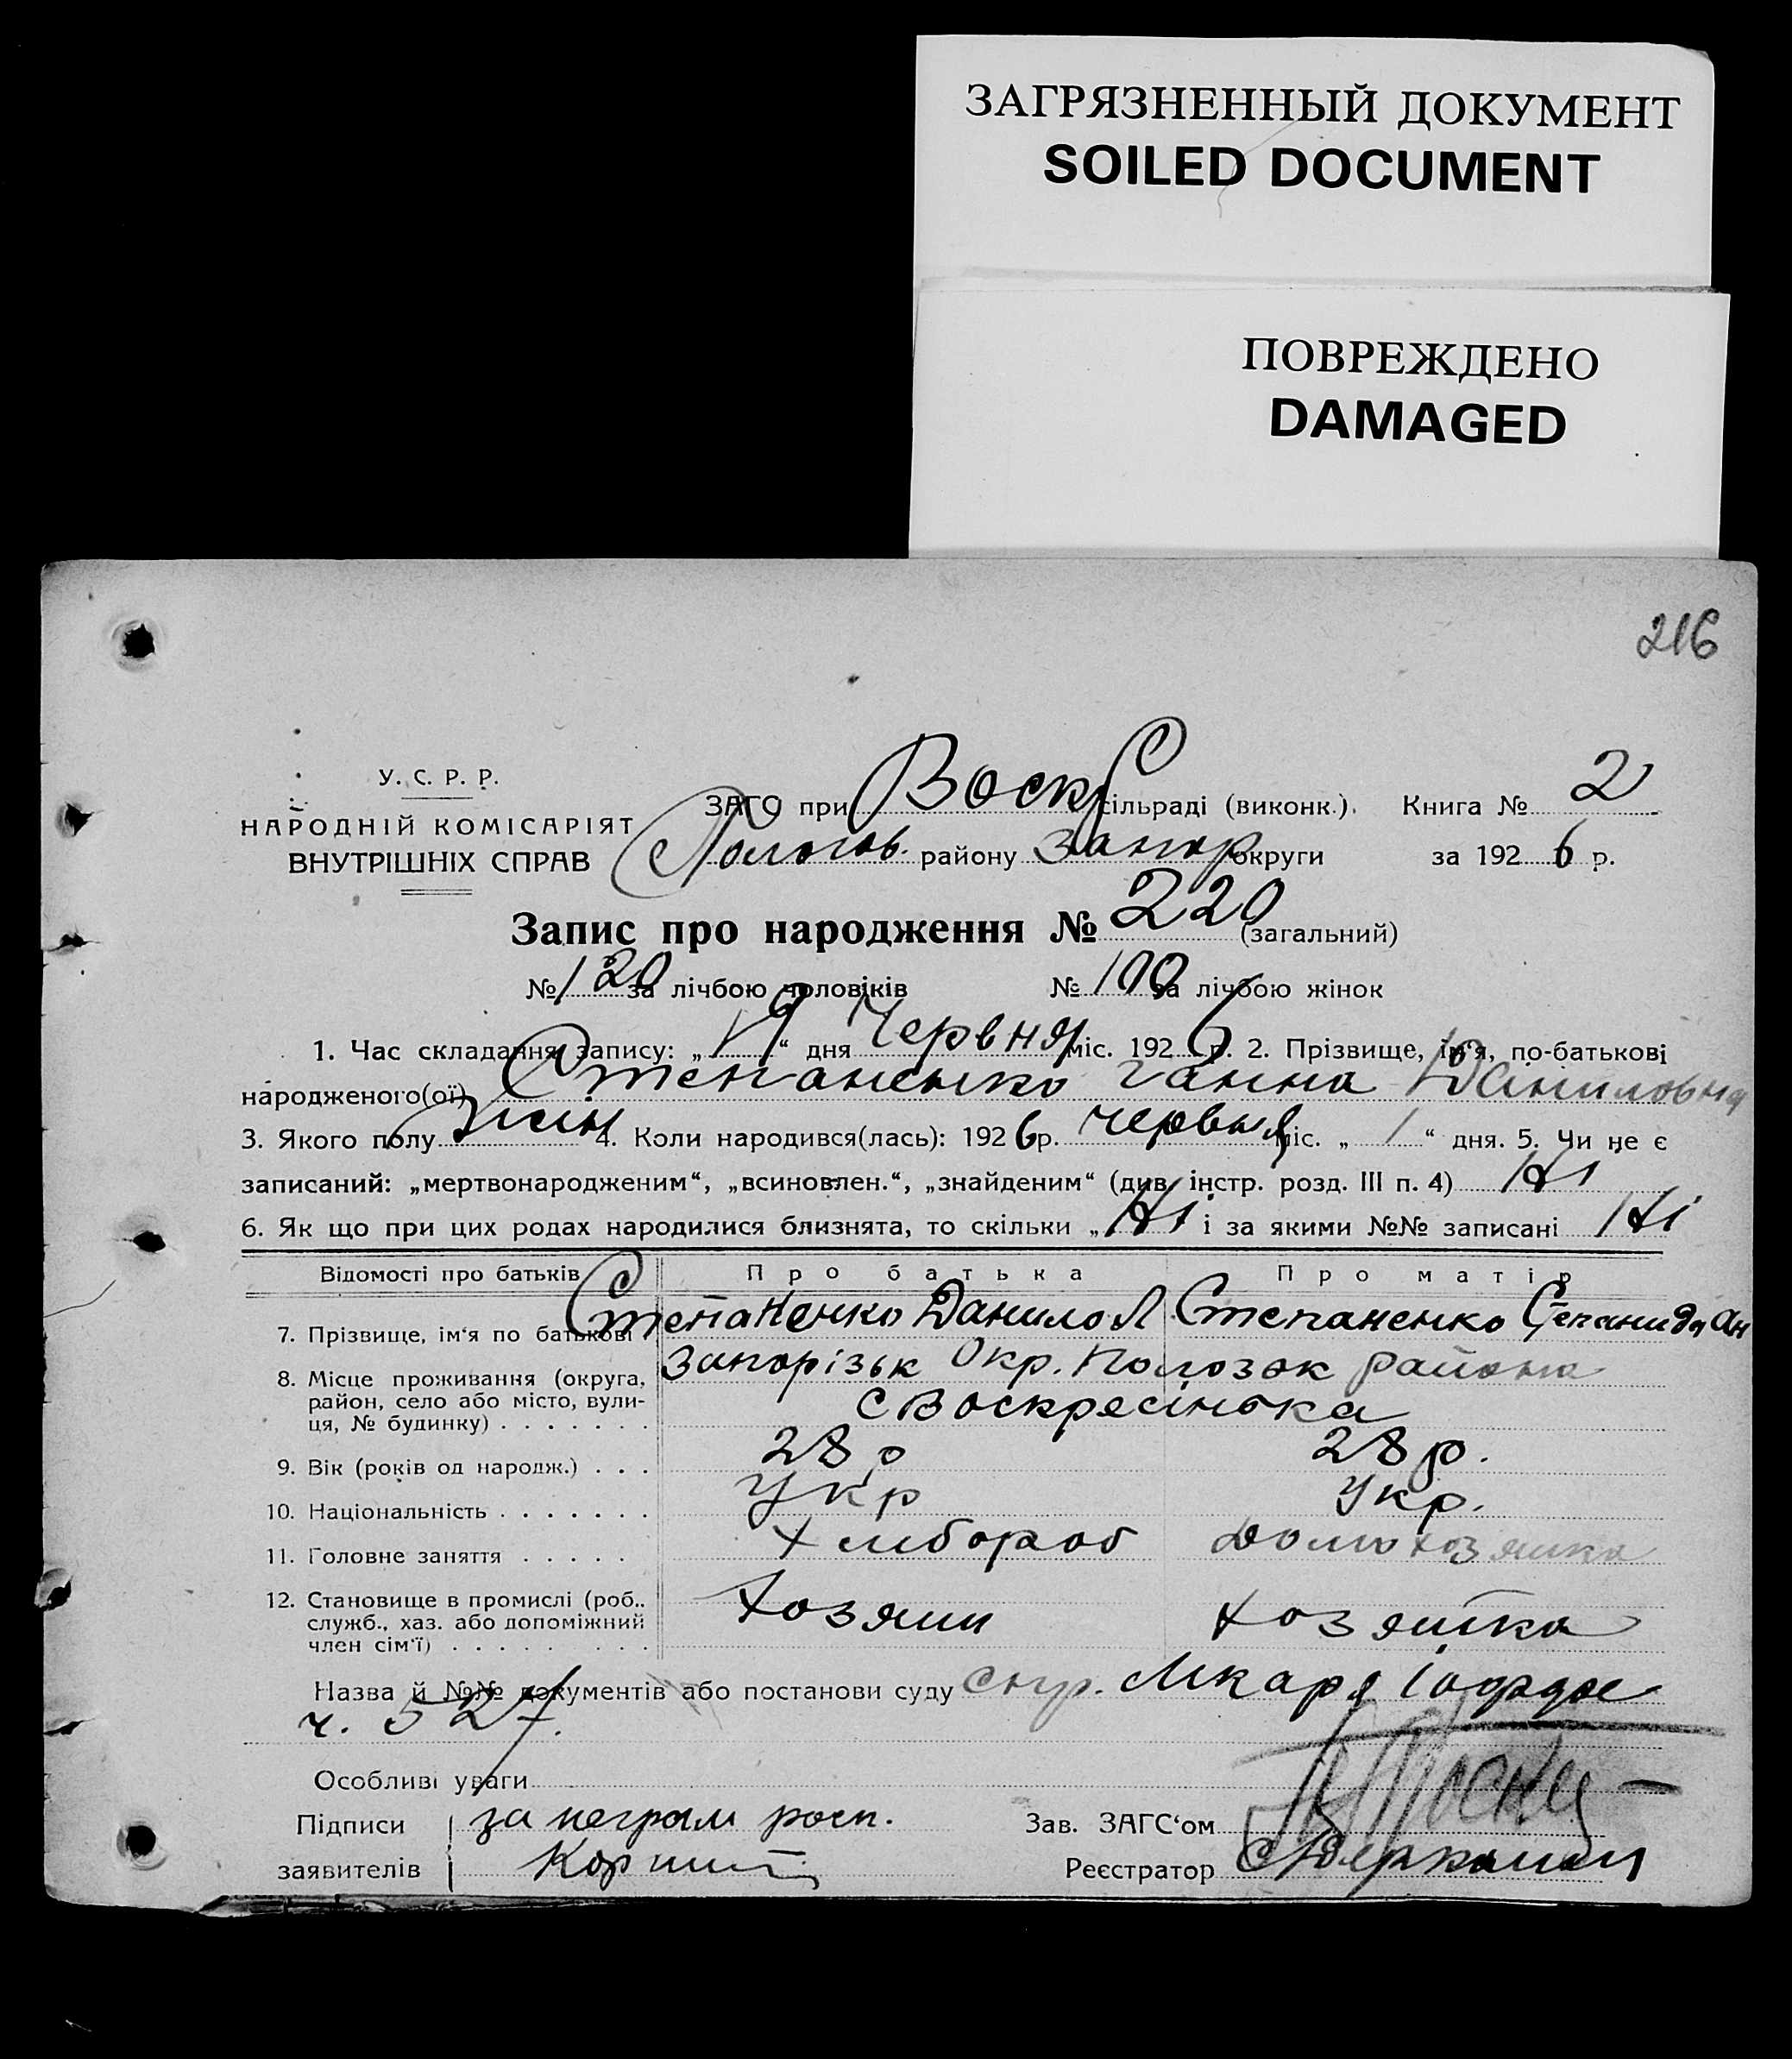 ЗАГРЯЗНЕННЫЙ ДОКУМЕНТ
SOILED DOCUMENT
ПОВРЕЖДЕНО
DAMAGED
216
У. С. Р. Р.
НАРОДНІЙ КОМІСАРІЯТ
ВНУТРІШНІХ СПРАВ
ЗАГС при Воскр сільраді (виконк.). Книга № 2
Пологов. району Запор округи за 1926 р.
Запис про народження № 220 (загальний)
№ 120 за лічбою чоловіків № 100 за лічбою жінок
1. Час складання запису: „ “ дня Червня міс. 1926 р. 2. Прізвище, ім'я, по-батькові
народженого(ої) Степаненко Ганна Даниловна
3. Якого полу Жін 4. Коли народився(лась): 1926 р. червня міс. „ 1 “ дня. 5. Чи не є
записаний: „мертвонародженим“, „всиновлен.“, „знайденим“ (див. інстр. розд. III п. 4) Ні
6. Як що при цих родах народилися близнята, то скільки „ Ні і за якими №№ записані Ні
Відомості про батьків Про батька Про матір
7. Прізвище, ім'я по батькові Степаненко Данило Л Степаненко Степанида Ан
8. Місце проживання (округа, Запорізьк Окр. Полозьк района
район, село або місто, вули- с Воскресінька
ця, № будинку) . . . . . . .
9. Вік (років од народж.) . . . 28 р 28 р.
10. Національність . . . . . . . Укр Укр.
11. Головне заняття . . . . . Хлибороб Домохозяйка
12. Становище в промислі (роб., Хозяин хозяйка
служб., хаз. або допоміжний
член сім'ї) . . . . . . . . .
Назва й №№ документів або постанови суду
ч. 527.
Особливі уваги
Підписи за неграм росп. Зав. ЗАГС'ом
заявителів Реєстратор